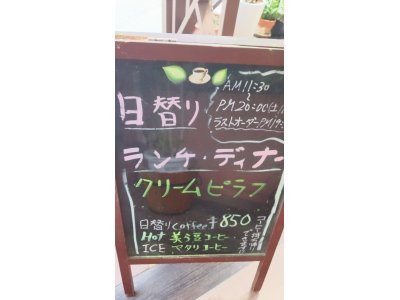 日替り
AM11:30
～
PM20:00(土)
ラストオーダーPM19:
ランチ・ディナー
クリームピラフ
日替りCoffee ¥850
Hot 美う豆コーヒー
ICE マタリコーヒー